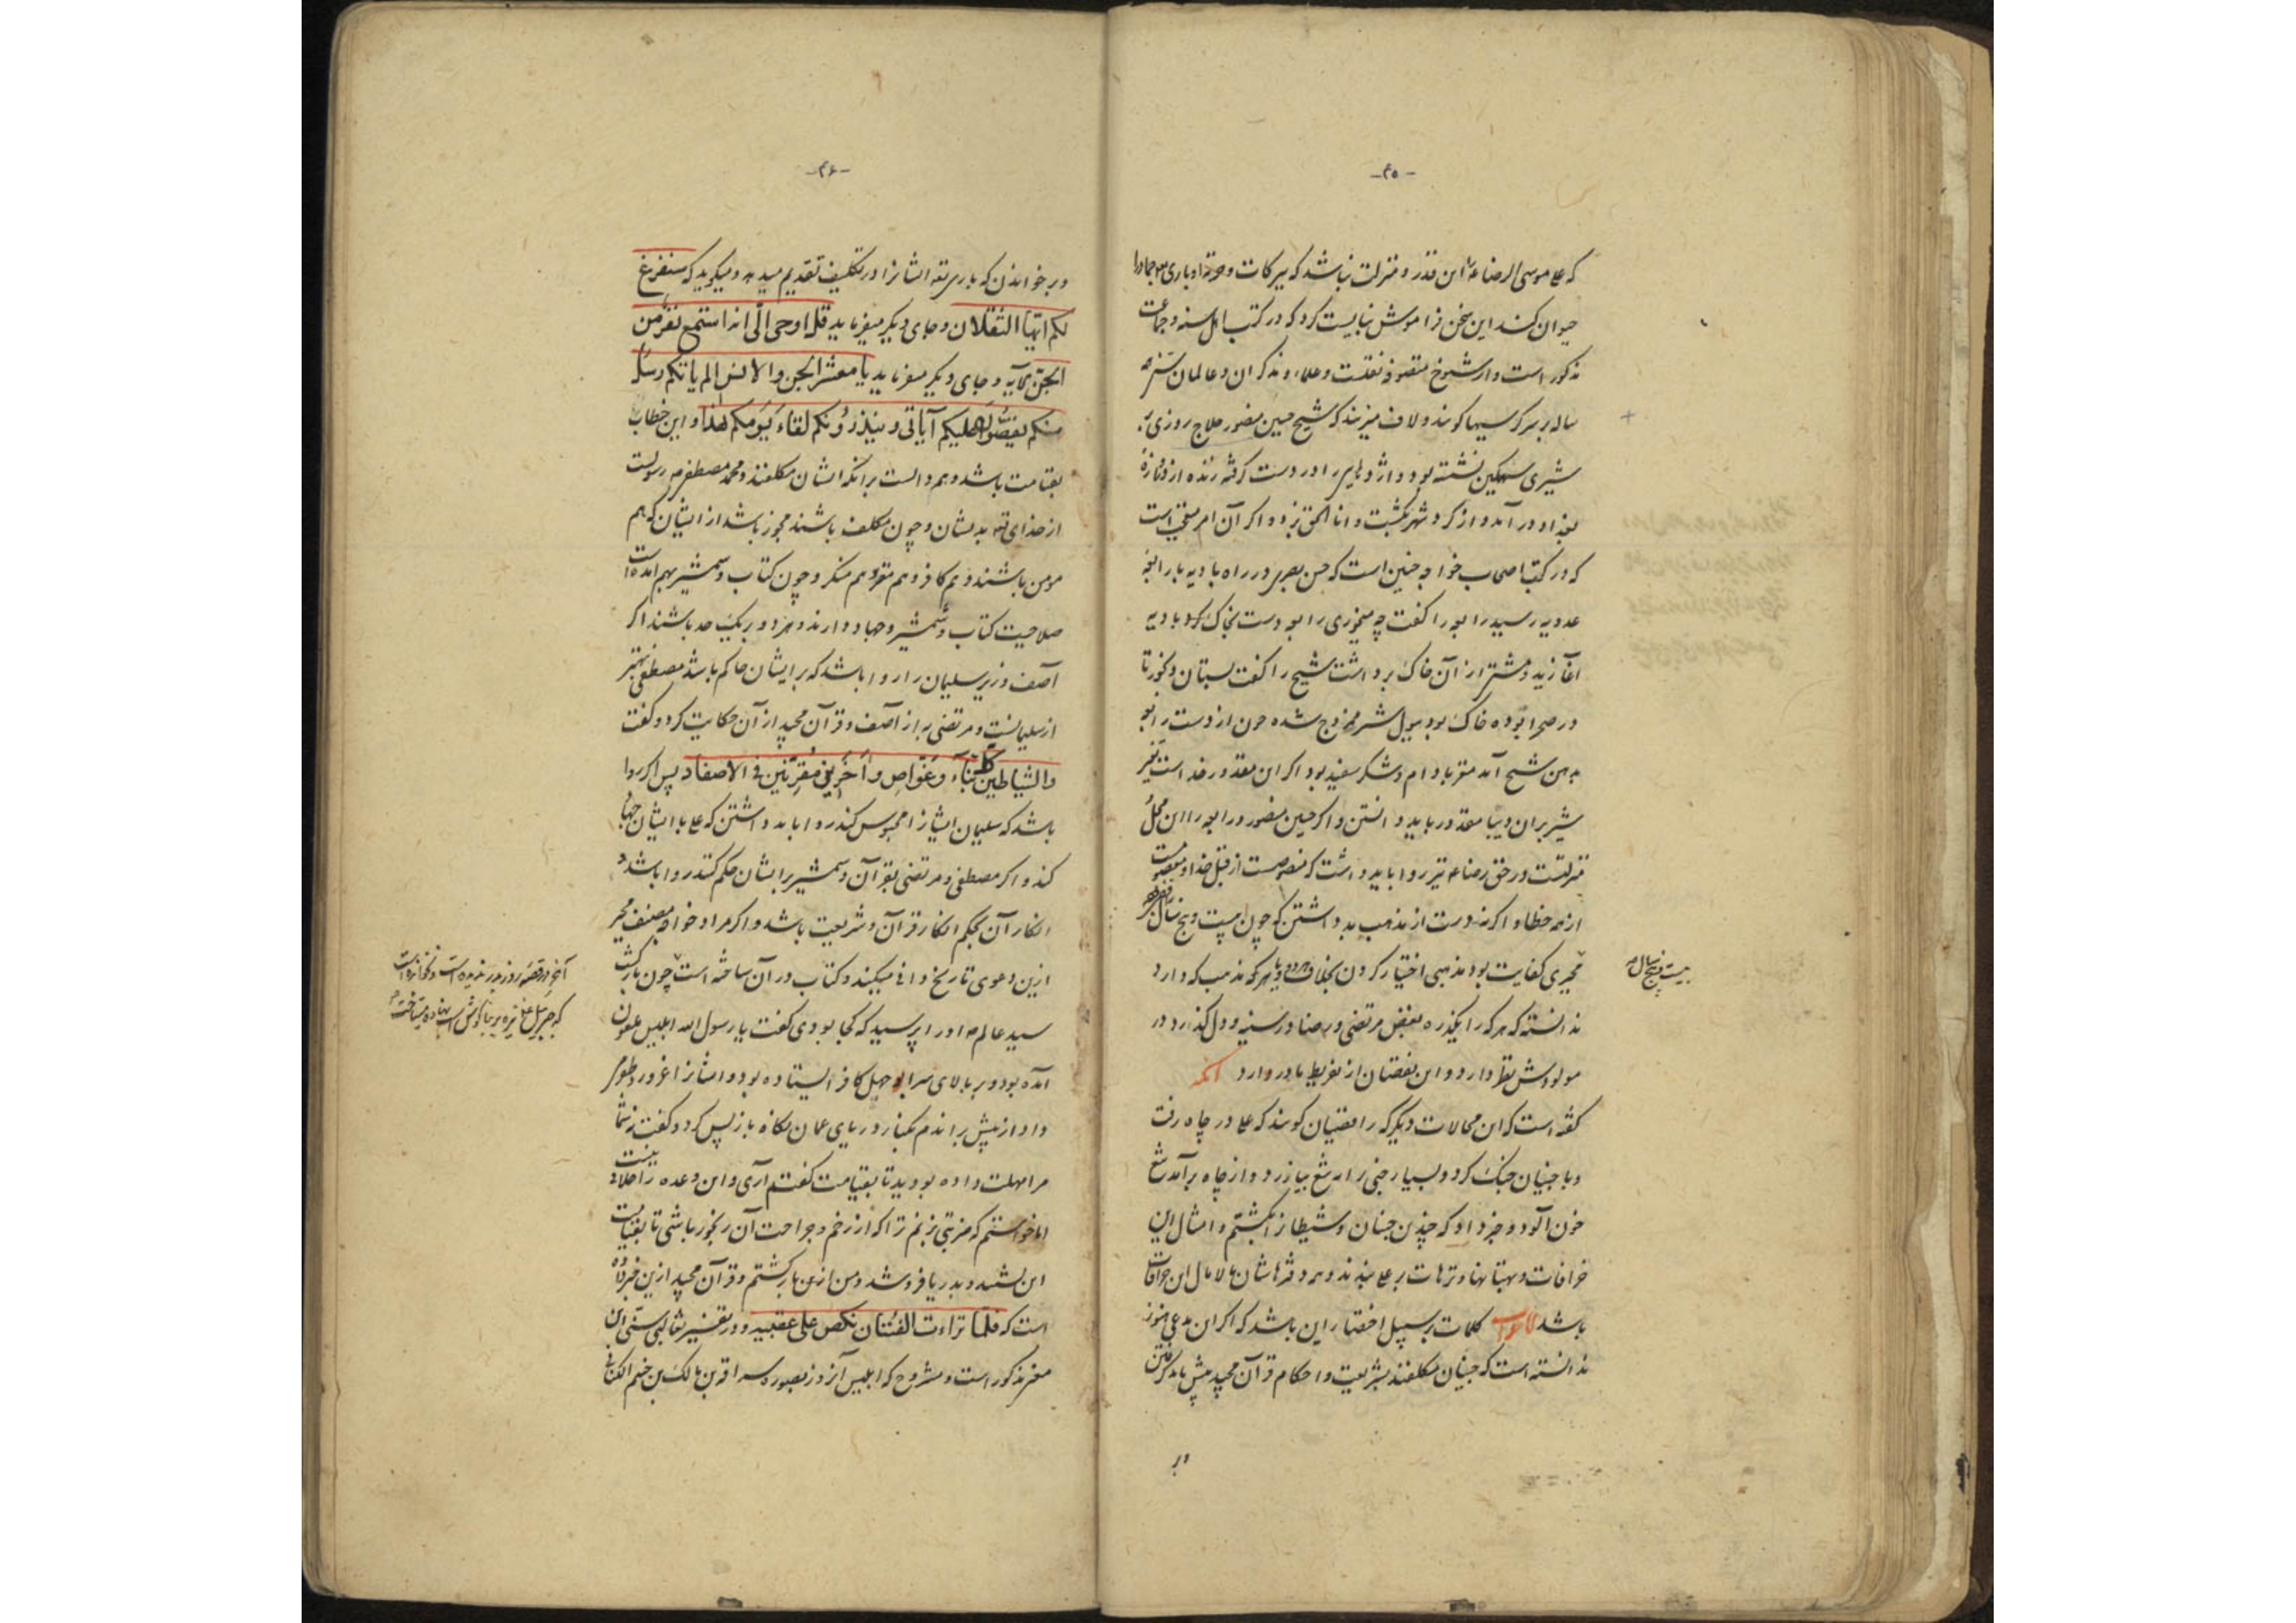 -۴۵-
که علی موسی الرضا را این قدر و منزلت نباشد که ببرکات و حرمت او باری
حیوان کند این سخن فراموش نبایست کرد که در کتب اهل سنه و جماعت
مذکور است و از شیوخ متصوفه نقلست و علما و مذکران و عالمان
ساله بر سر کرسیها کویند و لاف میزنند که شیخ حسین منصور حلاج روزی بر
شیری سهمکین نشسته بود و اژدهایی را در دست کرفته زنده از دروازهٔ
بغداد در آمد و از کرد شهر بکشت و انا الحق بزد و اکر آن امر
که در کتب اصحاب خواجه چنین است که حسن بصری در راه بادیه با رابعه
عدویه رسید رابعه را کفت چه میخوری رابعه دست بخاک کرد بادیه
آغازید و مشتی از آن خاک برداشت شیخ را کفت بستان و بخور تا
در صحرا بوده خاک بود ببول شتر ممزوج شده چون از دست رابعه
بدهن شیخ آمد مغز بادام و شکر سفید بود اکر این مقدور خداست
شیر بر آن دیبا مقدور باید دانستن و اکر حسین منصور و رابعه را این محل
منزلتست در حق رضا نیز روا باید داشت که منصوصست از قبل خدا و معصومست
از همه خطا و اکر نه دست از مذهب بد داشتن که چون بیست و پنج سال
مجبری کفایت بود مذهبی اختیار کردن بخلاف هر که مذهب که دارد
ندانسته که هر که را یکذره بغض مرتضی و رضا در سینه و دل کذرد در
مولودش نظر دارد و این نقصان از تفریط مادر دارد آنکه
کفته است که این محالات دیکر که رافضیان کویند که علی در چاه رفت
و با جنیان جنک کرد و بسیار جنی را به تیغ بیازرد و از چاه برآمد تیغ
خون آلود و خبر داد که چندین جنیان و شیطانرا بکشتم و امثال این
خرافات و بهتانها و ترهات بر علی بندند و همه دفترهاشان مالامال این خرافات
باشد الجواب کلمات بر سبیل اختصار این باشد که اکر این مدعی هنوز
ندانسته است که جنیان مکلفند بشریعت و احکام قرآن مجید پیش باید
بیست پنج سال
در
-۴۶-
در خواندن که باری تعه ایشانرا در تکلیف تقدیم میدهد و میکوید که سنفرغ
لکم ایها الثقلان و جای دیکر میفرماید قل اوحی الی انه استمع نفر من
الجن الآیه و جای دیکر میفرماید یا معشر الجن و الانس الم یاتکم رسل
منکم یقصون علیکم آیاتی و ینذرونکم لقاء یومکم هذا و این خطاب
بقیامت باشد و هم دالست بر آنکه ایشان مکلفند و محمد مصطفی ص رسولست
از خدای تعه بدیشان و چون مکلف باشند مجوز باشد از ایشان که هم
مومن باشند و هم کافر و هم مقر و هم منکر و چون کتاب و شمشیر بهم آمده است
صلاحیت کتاب و شمشیر و جهاد دارند و هر دو بر یک حد باشند اکر
آصف وزیر سلیمان را روا باشد که بر ایشان حاکم باشد مصطفی بهتر
از سلیمانست و مرتضی به از آصف و قرآن مجید از آن حکایت کرد و کفت
و الشیاطین کل بناء و غواص و آخرین مقرنین فی الاصفاد پس اکر روا
باشد که سلیمان ایشانرا محبوس کند روا باید داشتن که علی با ایشان جهاد
کند و اکر مصطفی و مرتضی بقرآن و شمشیر بر ایشان حکم کنند روا باشد و
انکار آن بحکم انکار قرآن و شریعت باشد و اکر مراد خواجه مصنف
ازین دعوی تاریخ وافی میکند و کتاب در آن ساخته است چون بازکشت
سید عالم ص او را پرسید که کجا بودی کفت یا رسول الله ابلیس ملعون
آمده بود و بر بالای سر ابو جهل کافر ایستاده بود و ایشانرا غرور
داد از پیش براندم بکنار دریای عمان نکاه باز پس کرد و کفت نه شما
مرا مهلت داده بودید تا بقیامت کفتم آری و این وعده را خلاف نیست
اما خواستم که ضربتی بزنم ترا که از زخم و جراحت آن رنجور باشی تا بقیامت
این بشنید و بدریا فرو شد و من ازین بازکشتم و قرآن مجید ازین خبر داده
است که فلما تراءت الفئتان نکص علی عقبیه و در تفسیر ثعالبی سنی این
معنی مذکور است و مشروح که ابلیس آنروز بصورة سراقه بن مالک بن جشم الکنانی
آنچه در قصه روز بدر است و نخوانده است
که جبرئیل علیه